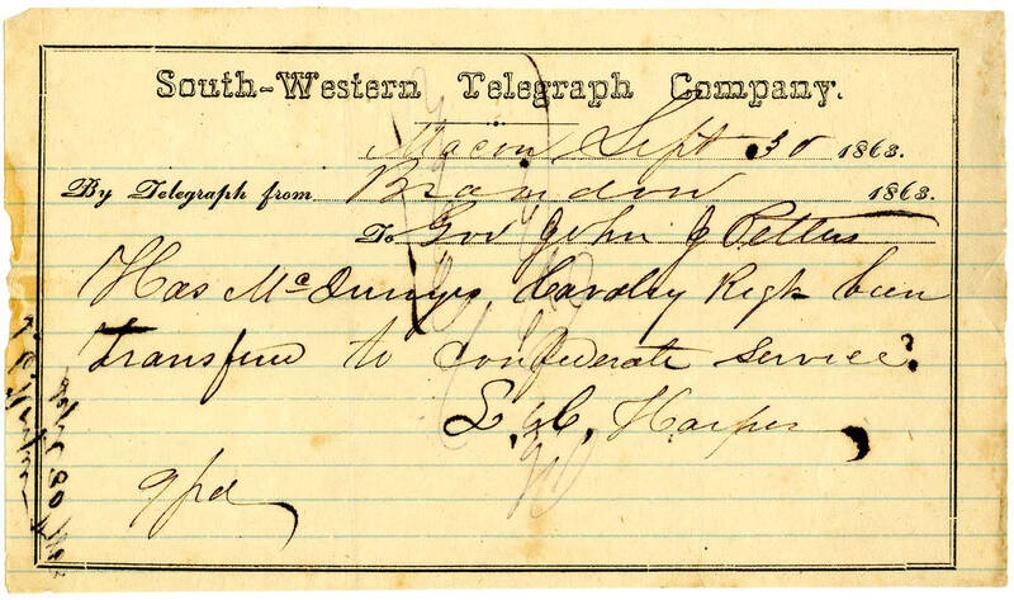 South-Western Telegraph Company.
Macon, Sept 30 1863.
By Telegraph from Brandon 1863.
To Gov John J Pettus
Has Mc Cavalry Regt been
transferred to Confederate service?
Harper
9 pd